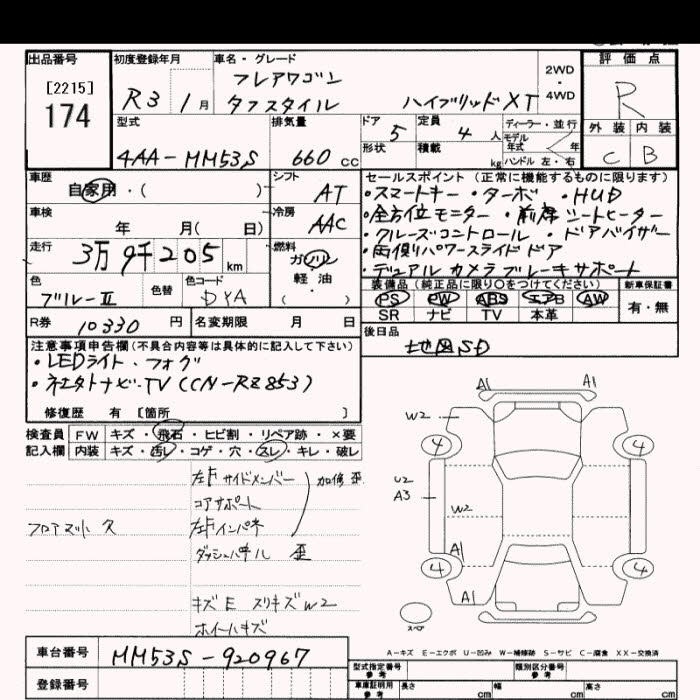 出品番号
[2215]
174
初度登録年月
R3 1月
車名・グレード
フレアワゴン
タフスタイル ハイブリッドXT
2WD
・
4WD
評価点
R
外装 内装
C B
型式
4AA-MM53S
排気量
660 cc
ドア
5
定員
4 人
形状
積載
kg
ディーラー・並行
モデル
年式 年
ハンドル 左・右
車歴
自家用・( )
シフト
AT
車検
年 月( 日)
冷房
AAC
走行
3万9千205 km
燃料
ガソリン
軽油
・( )
色
ブルーⅡ
色替
色コード
DYA
R券
10330 円
名変期限 月 日
セールスポイント (正常に機能するものに限ります)
・スマートキー ・ターボ ・HUD
・全方位モニター ・前席シートヒーター
・クルーズコントロール ・ドアバイザー
・両側パワースライドドア
・デュアルカメラブレーキサポート
装備品(純正品に限り○をつけてください)
PS PW ABS エアB AW
SR ナビ TV 本革
新車保証書
有・無
後日品
地図SD
注意事項申告欄(不具合内容等は具体的に記入して下さい)
・LEDライト・フォグ
・社外ナビ・TV(CN-RZ853)
修復歴 有 [箇所 ]
検査員 FW キズ・飛石・ヒビ割・リペア跡・×要
記入欄 内装 キズ・汚レ・コゲ・穴・スレ・キレ・破レ
左F サイドメンバー 加修 歪
コアサポート
フロアマット 欠
左Fインパネ
ダッシュパネル 歪
キズE スリキズW2
ホイールキズ
A1 A1
W2
4 4
U2
A3
W2
A1
4 4
A1
スペア
A-キズ E-エクボ U-凹み W-補修跡 S-サビ C-腐食 XX-交換済
車台番号
MM53S-920967
登録番号
型式指定番号
参考
類別区分番号
参考
車庫証明用
参考
長さ cm 幅 cm 高さ cm